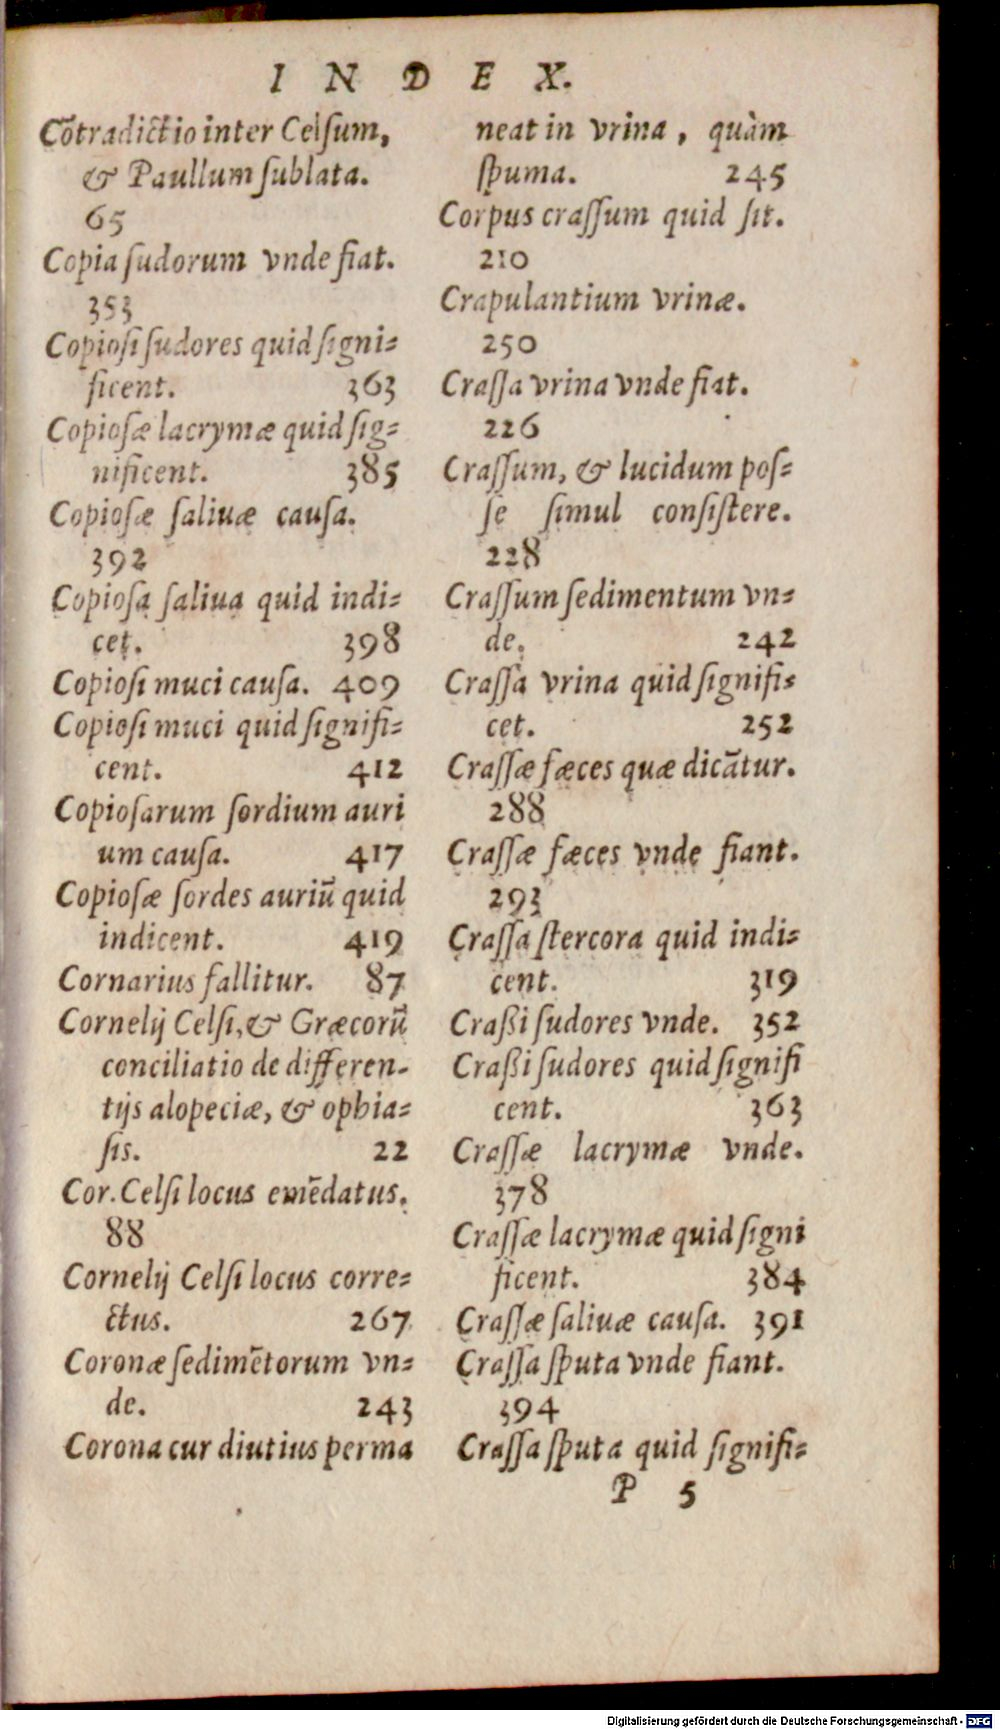 INDEX.
Cõtradictio inter Celſum,
& Paullum ſublata.
65
Copia ſudorum vnde fiat.
353
Copioſi ſudores quid ſigni=
ficent. 363
Copioſæ lacrymæ quid ſig=
nificent. 385
Copioſæ ſaliuæ cauſa.
392
Copioſa ſaliua quid indi=
cet. 398
Copioſi muci cauſa. 409
Copioſi muci quid ſignifi=
cent. 412
Copioſarum ſordium auri
um cauſa. 417
Copioſæ ſordes auriũ quid
indicent. 419
Cornarius fallitur. 87
Cornelij Celſi, & Græcorũ
conciliatio de differen-
tijs alopeciæ, & ophia=
ſis. 22
Cor. Celſi locus emẽdatus.
88
Cornelij Celſi locus corre=
ctus. 267
Coronæ ſedimẽtorum vn=
de. 243
Corona cur diutius perma
neat in vrina, quàm
ſpuma. 245
Corpus craſſum quid ſit.
210
Crapulantium vrinæ.
250
Craſſa vrina vnde fiat.
226
Craſſum, & lucidum poſ=
ſe ſimul conſiſtere.
228
Craſſum ſedimentum vn=
de. 242
Craſſa vrina quid ſignifi=
cet. 252
Craſſæ fæces quæ dicãtur.
288
Craſſæ fæces vnde fiant.
293
Craſſa ſtercora quid indi=
cent. 319
Craßi ſudores vnde. 352
Craßi ſudores quid ſignifi
cent. 363
Craſſæ lacrymæ vnde.
378
Craſſæ lacrymæ quid ſigni
ficent. 384
Craſſæ ſaliuæ cauſa. 391
Craſſa ſputa vnde fiant.
394
Craſſa ſputa quid ſignifi=
P 5
Digitalisierung gefördert durch die Deutsche Forschungsgemeinschaft - DFG